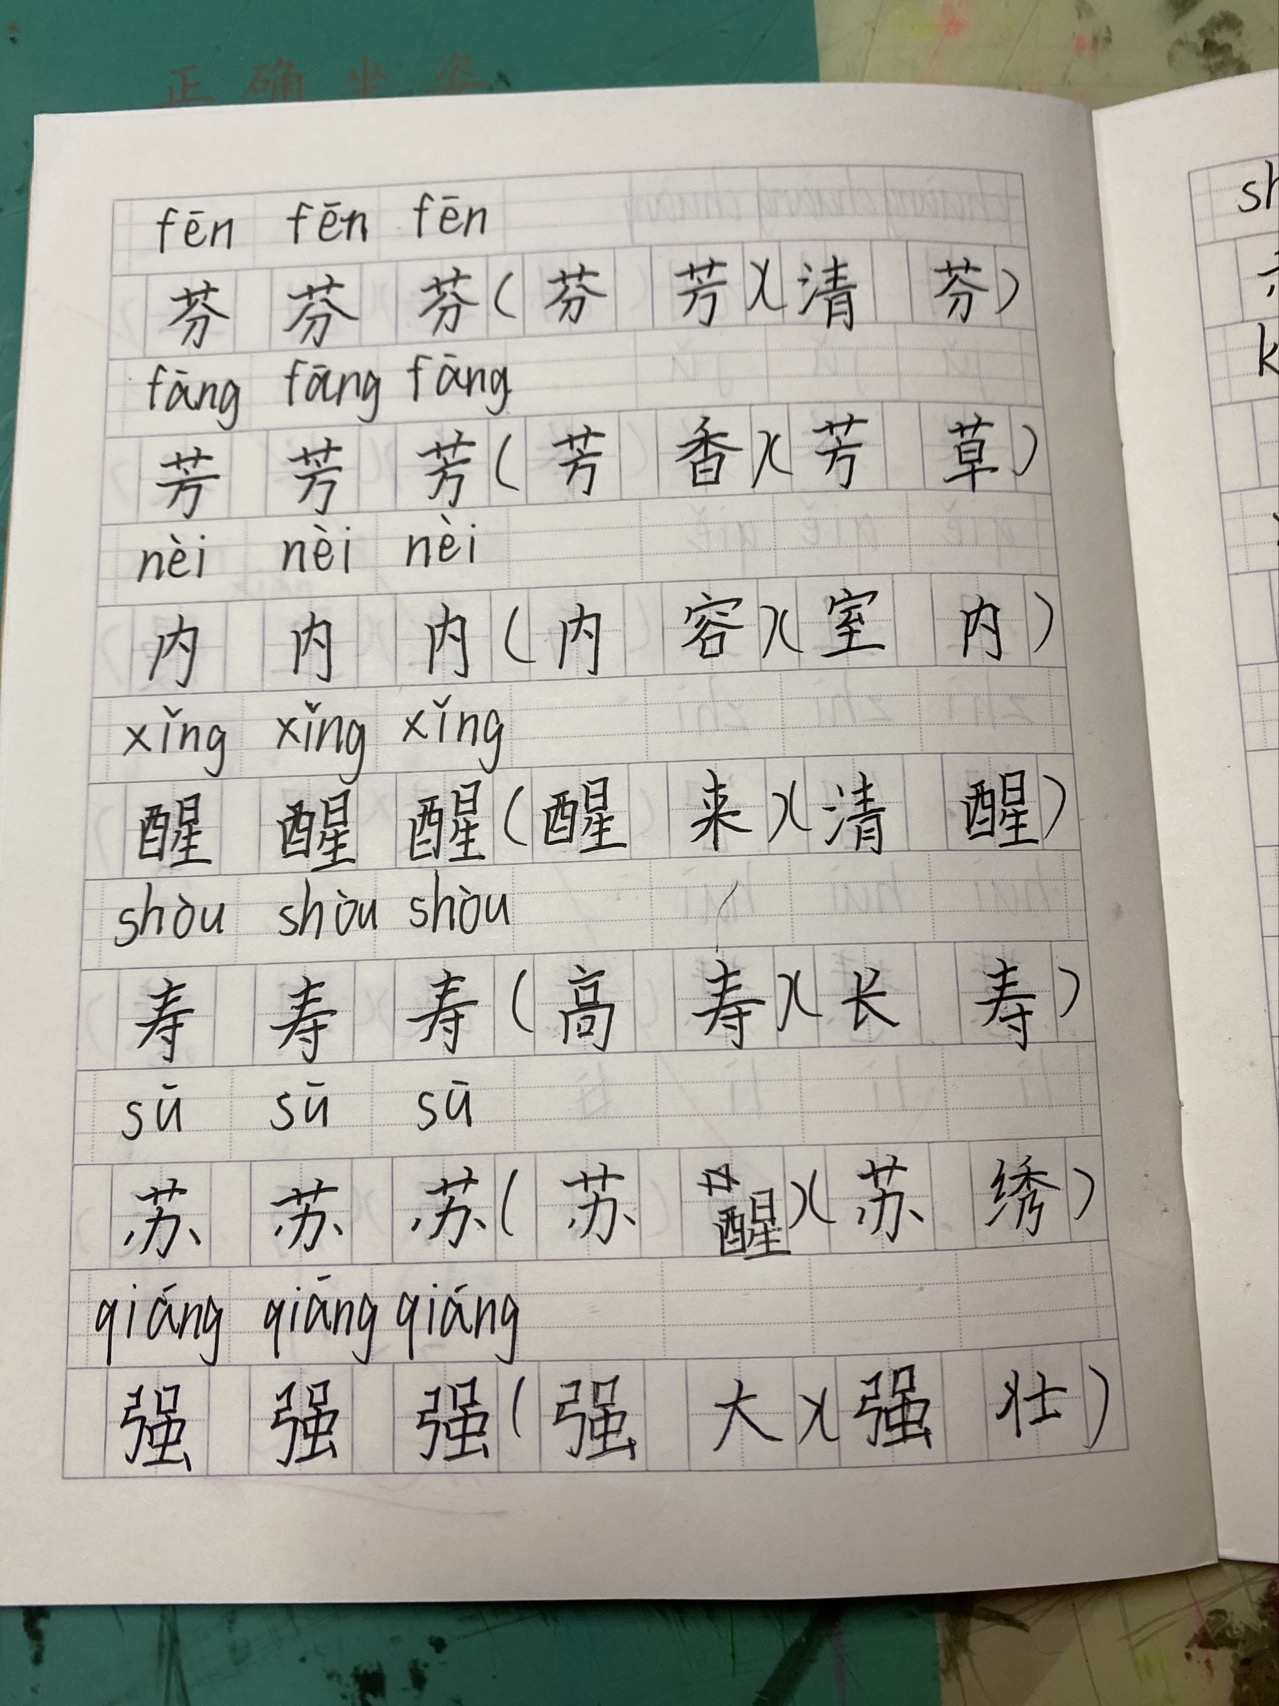 正确坐姿
fēn fēn fēn
芬 芬 芬(芬 芳)(清 芬)
fāng fāng fāng
芳 芳 芳(芳 香)(芳 草)
nèi nèi nèi
内 内 内(内 容)(室 内)
xǐng xǐng xǐng
醒 醒 醒(醒 来)(清 醒)
shòu shòu shòu
寿 寿 寿(高 寿)(长 寿)
sū sū sū
苏 苏 苏(苏 醒)(苏 绣)
qiáng qiāng qiáng
强 强 强(强 大)(强 壮)
sh
k